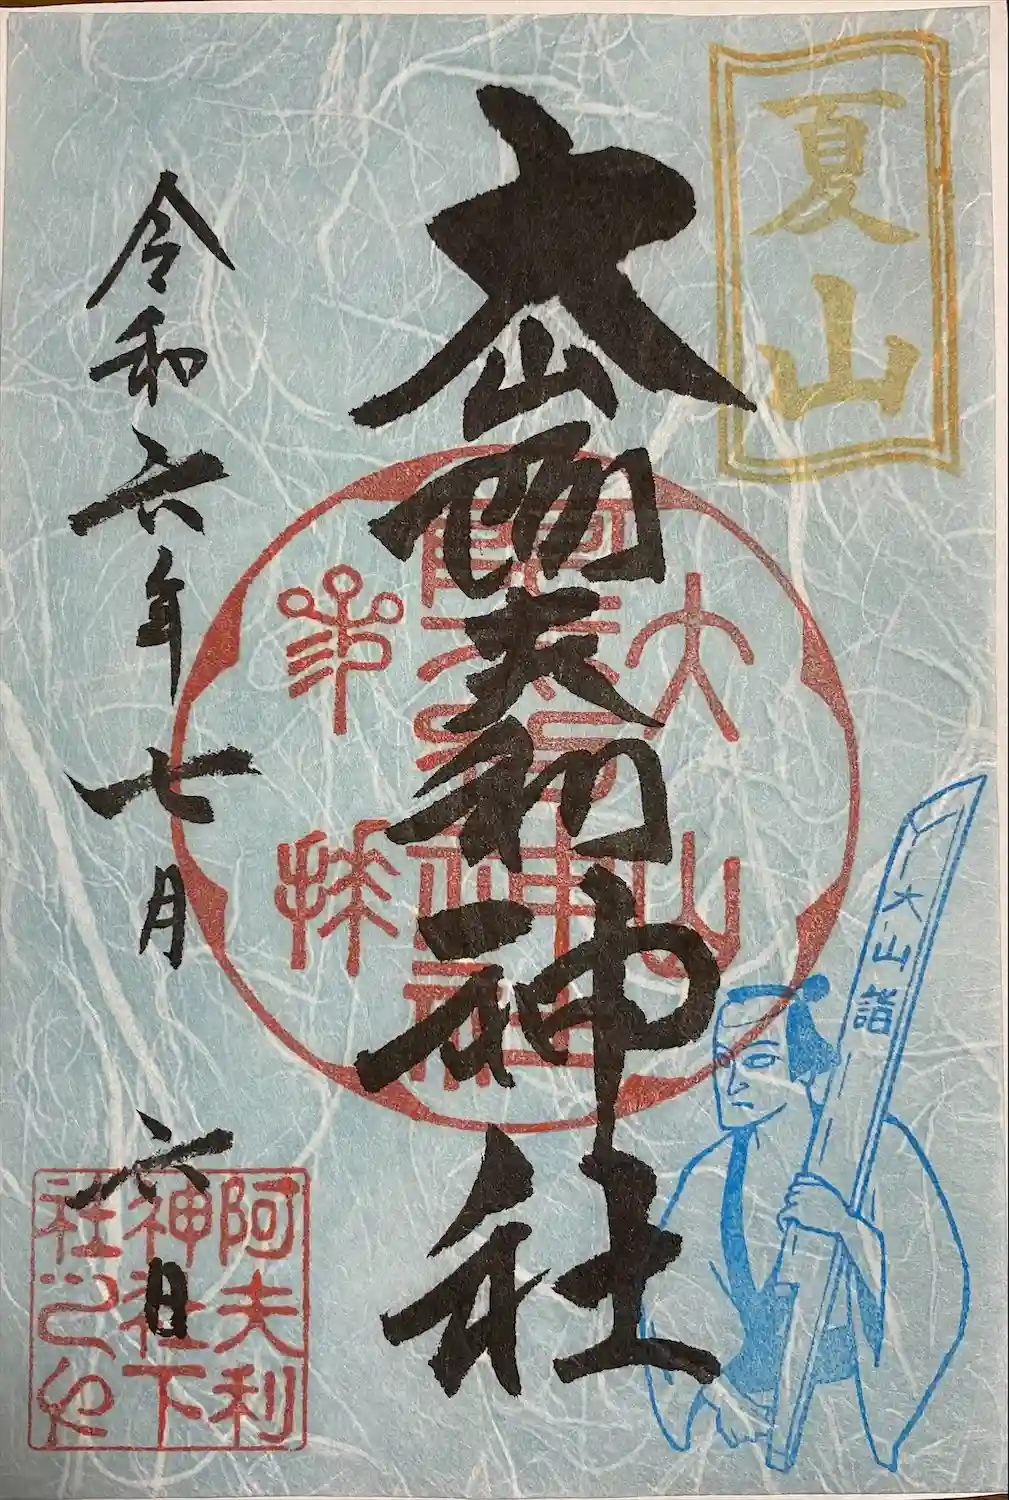 夏山
大山阿夫利神社
大山
參拜
大山詣
令和六年七月六日
阿夫利
神社下
社之印